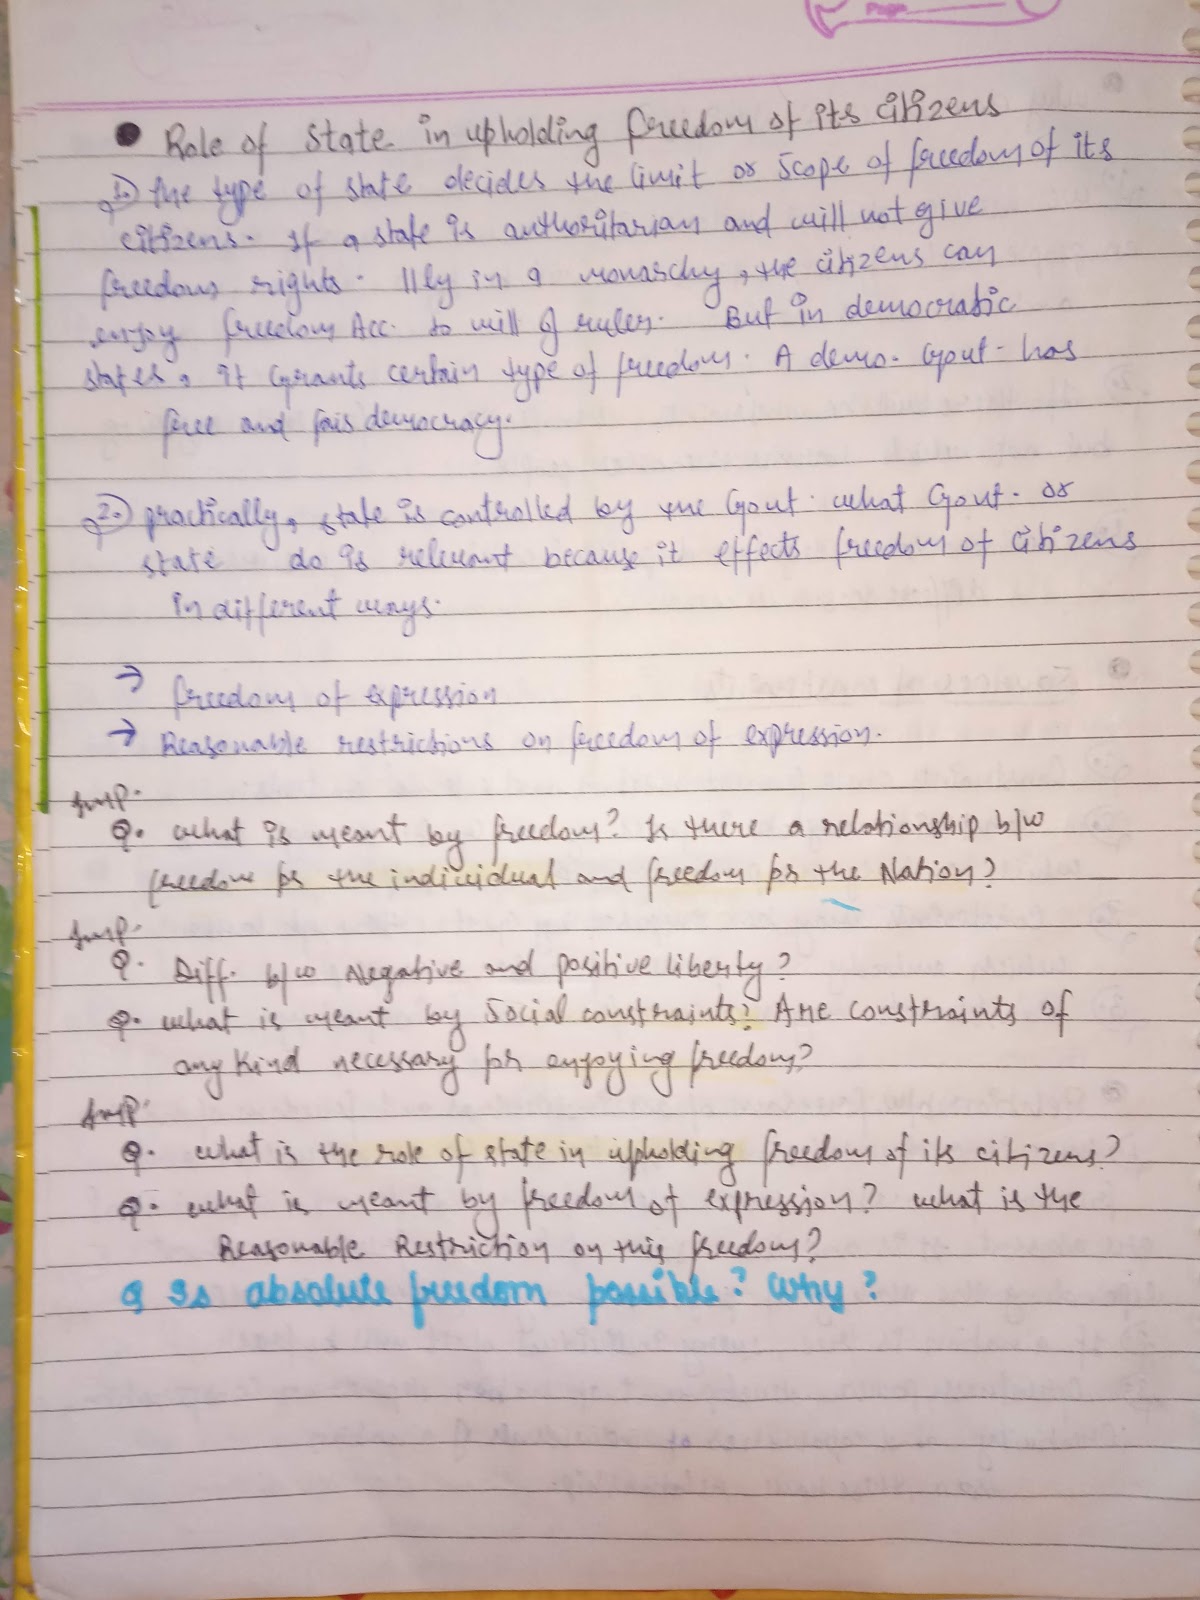 Page
Role of State in upholding freedom of its citizens
1.) the type of state decides the limit or scope of freedom of its
citizens. If a state is authoritarian and will not give
freedom rights. llly in a monarchy, the citizens can
enjoy freedom Acc. to will of ruler. But in democratic
states, it Grants certain type of freedom. A demo. Govt. has
free and fair democracy.
2.) practically, state is controlled by the Govt. what Govt. or
state do is relevant because it effects freedom of citizens
in different ways.
→ freedom of expression
→ Reasonable restrictions on freedom of expression.
Imp.
Q. what is meant by freedom? Is there a relationship b/w
freedom for the individual and freedom for the Nation?
Imp.
Q. Diff. b/w Negative and positive liberty?
Q. what is meant by Social constraints? Are constraints of
any kind necessary for enjoying freedom?
Imp.
Q. what is the role of state in upholding freedom of its citizens?
Q. what is meant by freedom of expression? what is the
Reasonable Restriction on this freedom?
Q Is absolute freedom possible? Why?